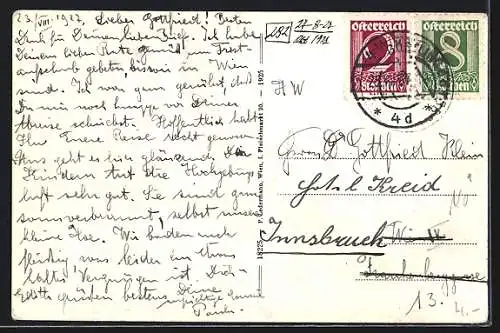 23. VIII. 1927. Lieber Gottfried! Besten
Dank für Deinen lieben Brief. Ich habe
Deinen lieben Rate gemäß um Frist-
aufschub gebeten, bis wir in Wien
sind. Ich war ganz gerührt, daß
Du mir noch knapp vor Deiner
Abreise schriebst. Hoffentlich habt
Ihr Eure Reise recht genossen.
Uns geht es hier glänzend. Den
Kindern tut die Hochgebirgs-
luft sehr gut. Sie sind ganz
sonnverbrannt, selbst unsere
kleine Ilse. Wir baden auch
fleißig was leider ein etwas
kaltes Vergnügen ist. Dich
Edith grüßen bestens Deine
Paula.
P. Ledermann, Wien, I. Fleischmarkt 20. – 1925
18225
282
27-8-27
HW
Österreich
Österreich
8
Groschen
Groschen
* 4d *
Herrn Dr Gottfried Klein
Hotel Kreid
Innsbruck
Wien IX
13.
4.-